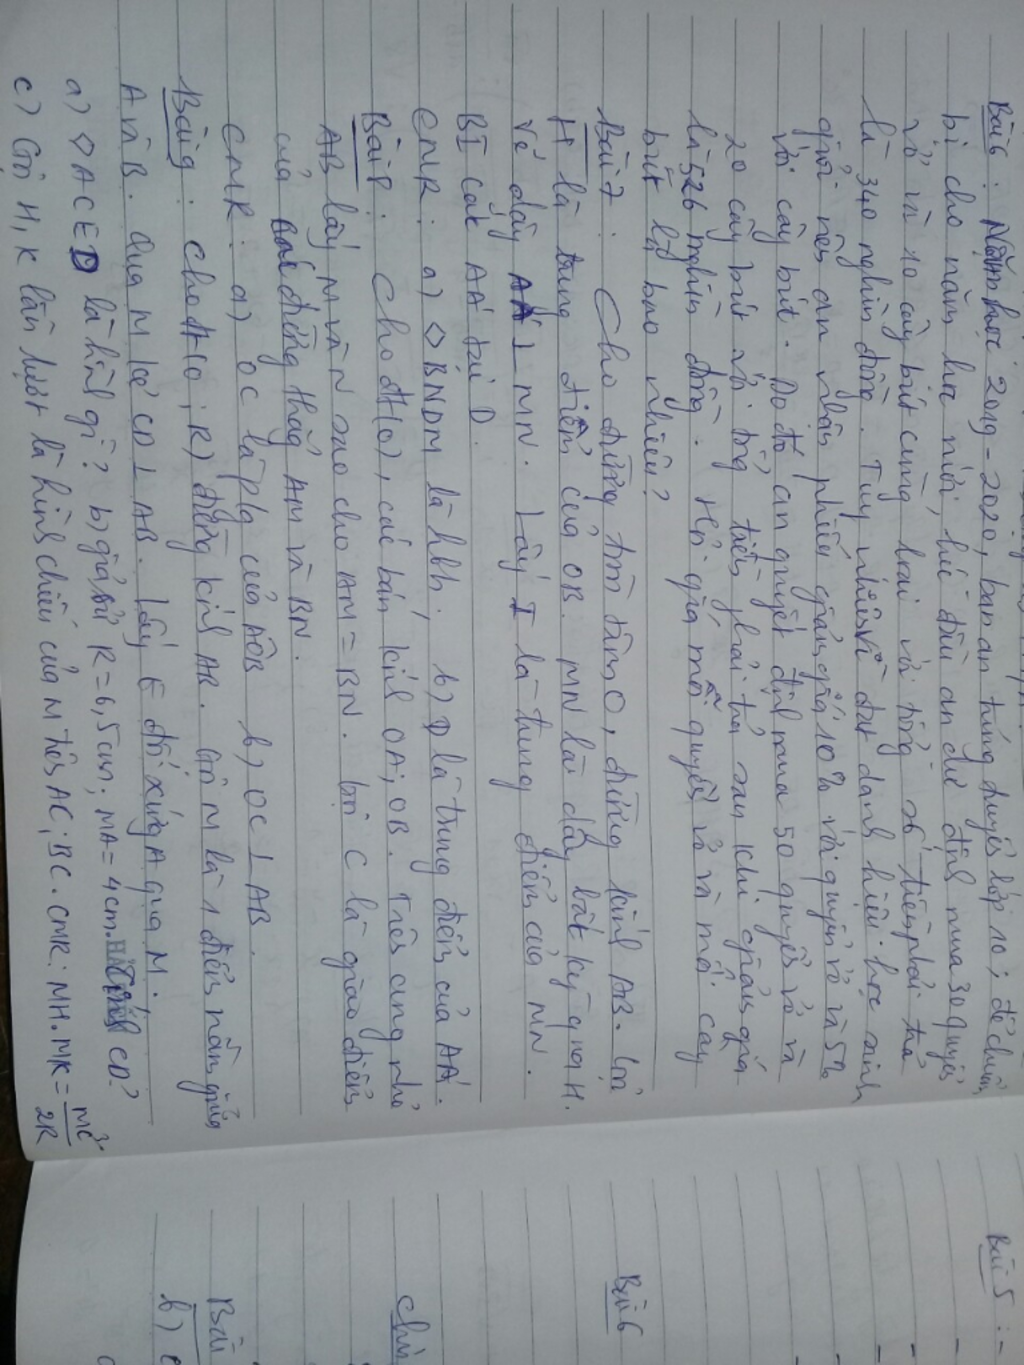 Bài 6 : Năm học 2019 - 2020, bạn an trúng tuyển lớp 10 ; để chuẩn
bị cho năm học mới, lúc đầu an dự định mua 30 quyển
vở và 10 cây bút cùng loại với tổng số tiền phải trả
là 340 nghìn đồng. Tuy nhiên vì đạt danh hiệu học sinh
giỏi nên an nhận phiếu giảm giá 10% với quyển vở và 5%
với cây bút. Do đó an quyết định mua 50 quyển vở và
20 cây bút với tổng tiền phải trả sau khi giảm giá
là 526 nghìn đồng. Hỏi giá mỗi quyển vở và mỗi cây
bút là bao nhiêu?
Bài 7 : Cho đường tròn tâm O, đường kính AB. Gọi
H là trung điểm của OB. MN là dây bất kỳ qua H.
Vẽ dây AA' ⊥ MN. Lấy I là trung điểm của MN.
BI cắt AA' tại D.
CMR : a) ◇BNDM là hbh; b) D là trung điểm của AA'.
Bài 8 : Cho đt(O), các bán kính OA; OB. Trên cung nhỏ
AB lấy M và N sao cho AM = BN. Gọi C là giao điểm
của đường thẳng AM và BN.
CMR : a) OC là p/g của AÔB b) OC ⊥ AB.
Bài 9 : Cho đt(O ; R) đường kính AB. Gọi M là 1 điểm nằm giữa
A và B. Qua M kẻ CD ⊥ AB. Lấy E đối xứng A qua M.
a) ◇ACED là hình gì? b) giả sử R = 6,5cm; MA = 4cm. Tính CD?
c) Gọi H, K lần lượt là hình chiếu của M trên AC; BC. CMR: MH.MK = MC³/2R
Bài 5 :
Bài 6
Bài
b)